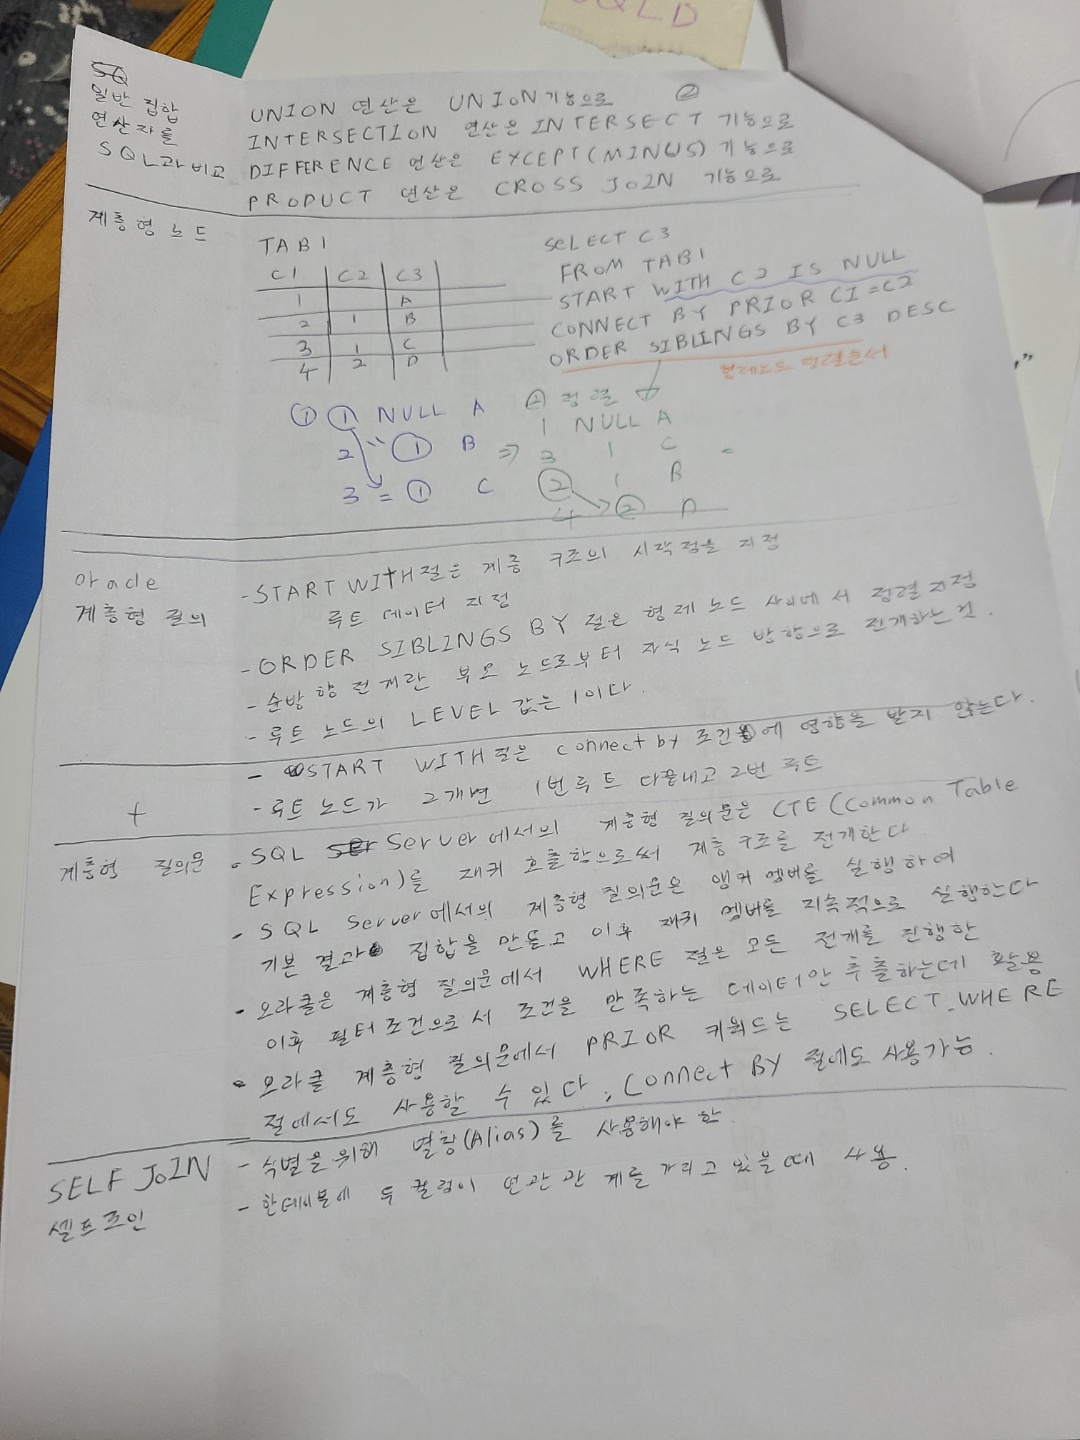 SQLD
일반 집합
연산자를
SQL과 비교
②
UNION 연산은 UNION 기능으로
INTERSECTION 연산은 INTERSECT 기능으로
DIFFERENCE 연산은 EXCEPT(MINUS) 기능으로
PRODUCT 연산은 CROSS JOIN 기능으로
계층형 노드
TAB1
C1 C2 C3
1 A
2 1 B
3 1 C
4 2 D
SELECT C3
FROM TAB1
START WITH C2 IS NULL
CONNECT BY PRIOR C1=C2
ORDER SIBLINGS BY C3 DESC
형제노드 정렬순서
① ① NULL A
2 ① B
3 = ① C
⇒
② 정렬
1 NULL A
3 1 C
② 1 B
4 ② D
oracle
계층형 질의
- START WITH절은 계층 구조의 시작점을 지정
루트 데이터 지정
- ORDER SIBLINGS BY 절은 형제 노드 사이에서 정렬 지정
- 순방향 전개란 부모 노드로부터 자식 노드 방향으로 전개하는 것.
- 루트 노드의 LEVEL 값은 1이다.
- START WITH절은 connect by 조건에 영향을 받지 않는다.
- 루트 노드가 2개면 1번루트 다끝내고 2번 루트
+
계층형 질의문
• SQL Server에서의 계층형 질의문은 CTE (Common Table
Expression)를 재귀 호출함으로써 계층 구조를 전개한다
• SQL Server에서의 계층형 질의문은 앵커 멤버를 실행하여
기본 결과 집합을 만들고 이후 재귀 멤버를 지속적으로 실행한다
• 오라클은 계층형 질의문에서 WHERE 절은 모든 전개를 진행한
이후 필터 조건으로서 조건을 만족하는 데이터만 추출하는데 활용
• 오라클 계층형 질의문에서 PRIOR 키워드는 SELECT, WHERE
절에서도 사용할 수 있다, Connect BY 절에도 사용가능.
SELF JOIN
셀프조인
- 식별을 위해 별칭(Alias)를 사용해야 함.
- 한테이블에 두 컬럼이 연관 관계를 가지고 있을 때 사용.